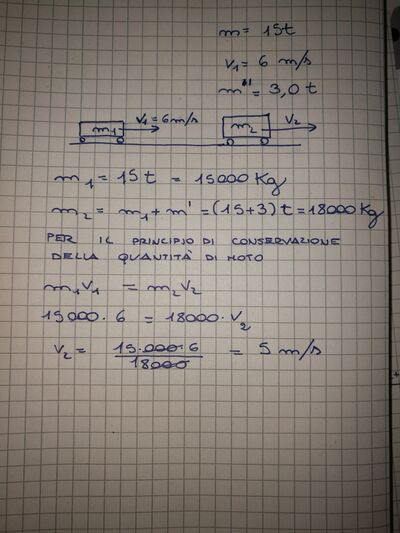 m = 15t
v₁ = 6 m/s
m" = 3,0 t
m₁ v₁ = 6 m/s m₂ v₂
m₁ = 15 t = 15000 Kg
m₂ = m₁ + m' = (15+3) t = 18000 Kg
PER IL PRINCIPIO DI CONSERVAZIONE
DELLA QUANTITÀ DI MOTO
m₁v₁ = m₂v₂
15000 · 6 = 18000 · v₂
v₂ = 15.000 · 6 / 18000 = 5 m/s